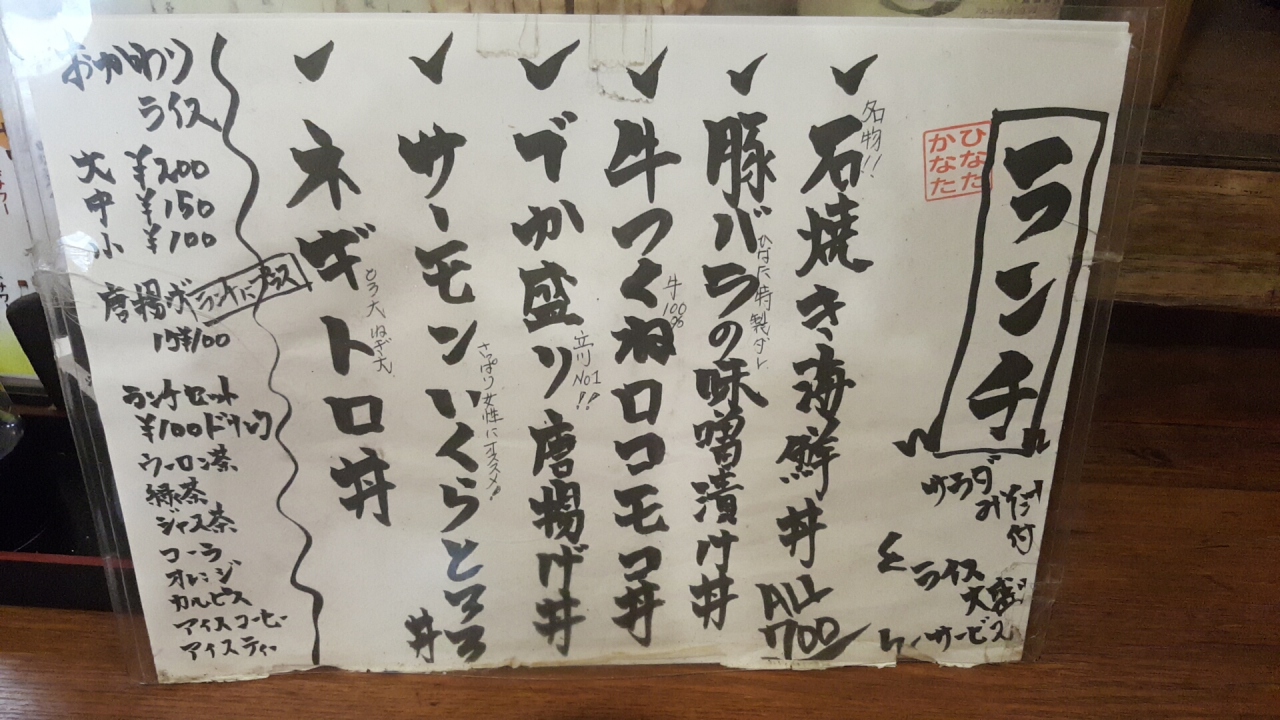 ランチ
ひなた
かなた
サラダ
みそ汁
付
ライス
大盛
サービス
名物!!
石焼き海鮮丼
ALL
700
豚バラの味噌漬け丼
ひなた特製ダレ
牛つくねロコモコ丼
牛100%
デカ盛り唐揚げ丼
立川No1!!
サーモンいくらとろろ丼
さっぱり女性にオススメ!
ネギトロ丼
とろ大 ねぎ大
おかわり
ライス
大 ¥200
中 ¥150
小 ¥100
ランチにプラス
唐揚げ
1ケ¥100
ランチセット
¥100ドリンク
ウーロン茶
緑茶
ジャス茶
コーラ
オレンジ
カルピス
アイスコーヒー
アイスティー